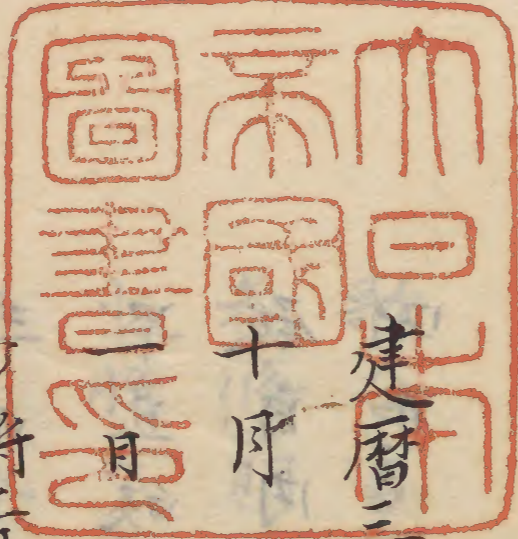 大日本
帝國
圖書印
建暦
十月
一日